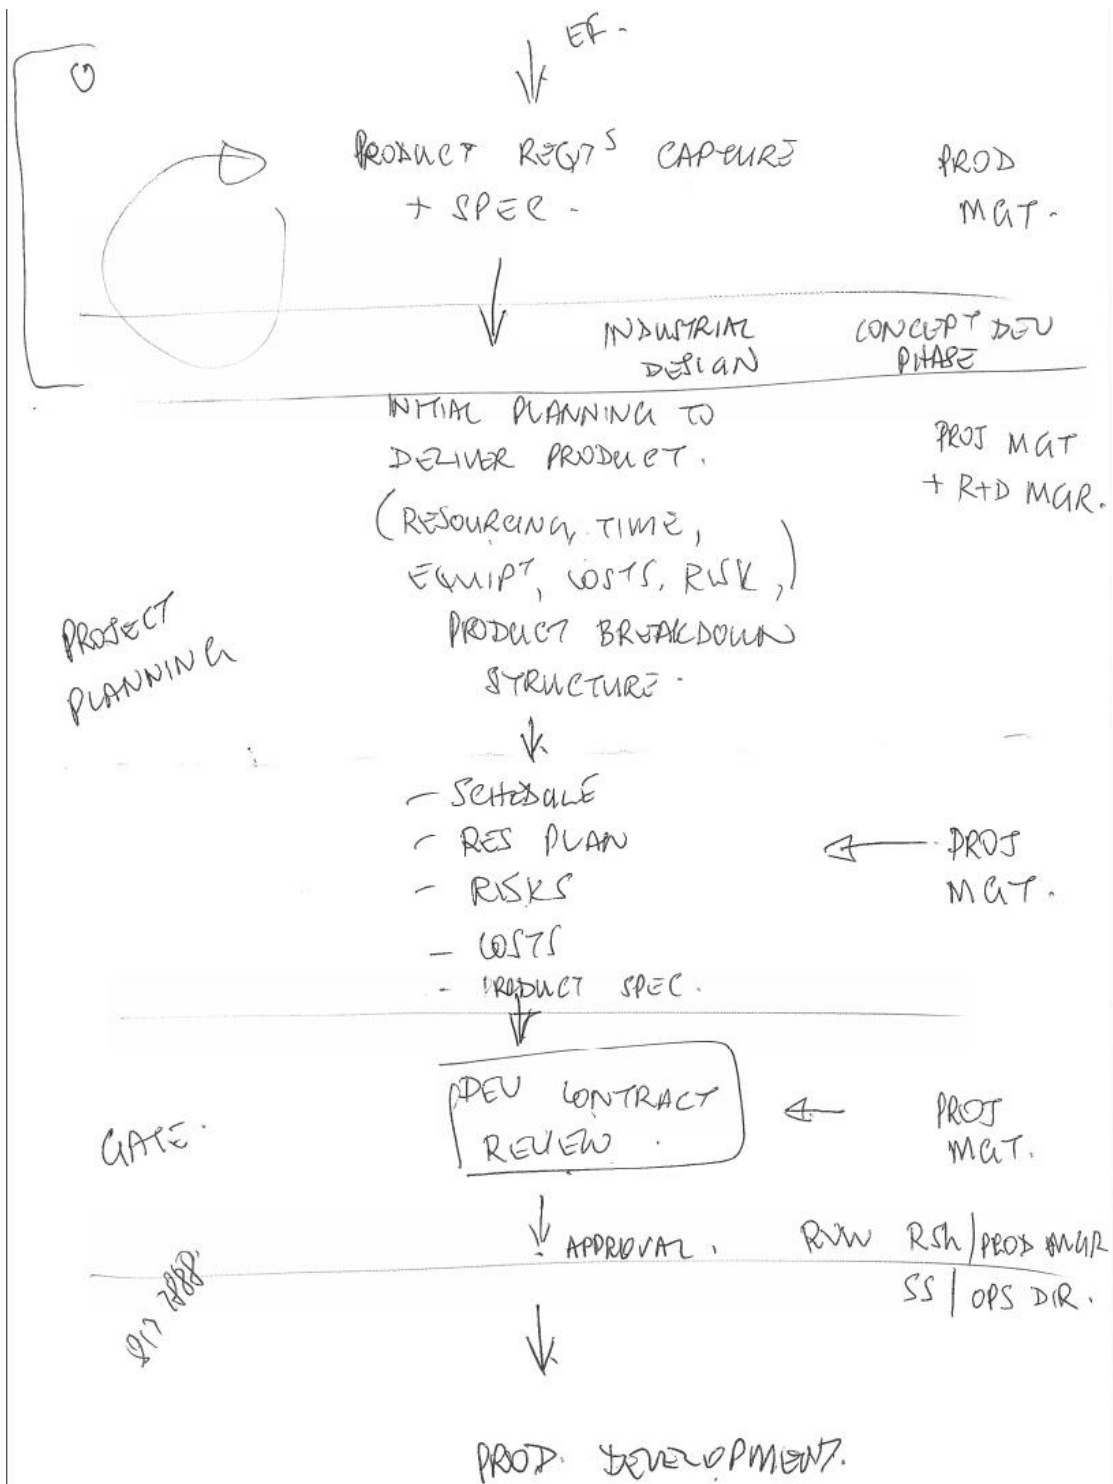 PRODUCT REQTS CAPTURE
+ SPEC.
PROD
MGT.
INDUSTRIAL
DESIGN
CONCEPT DEV
PHASE
INITIAL PLANNING TO
DELIVER PRODUCT.
(RESOURCING, TIME,
EQUIPT, COSTS, RISK,)
PRODUCT BREAKDOWN
STRUCTURE.
PROJ MGT
+ R+D MGR.
PROJECT
PLANNING
- SCHEDULE
- RES PLAN
- RISKS
- COSTS
- PRODUCT SPEC.
PROJ
MGT.
GATE.
DEV CONTRACT
REVIEW.
PROJ
MGT.
APPROVAL.
PROD MGR
SS | OPS DIR.
PROD. DEVELOPMENT.